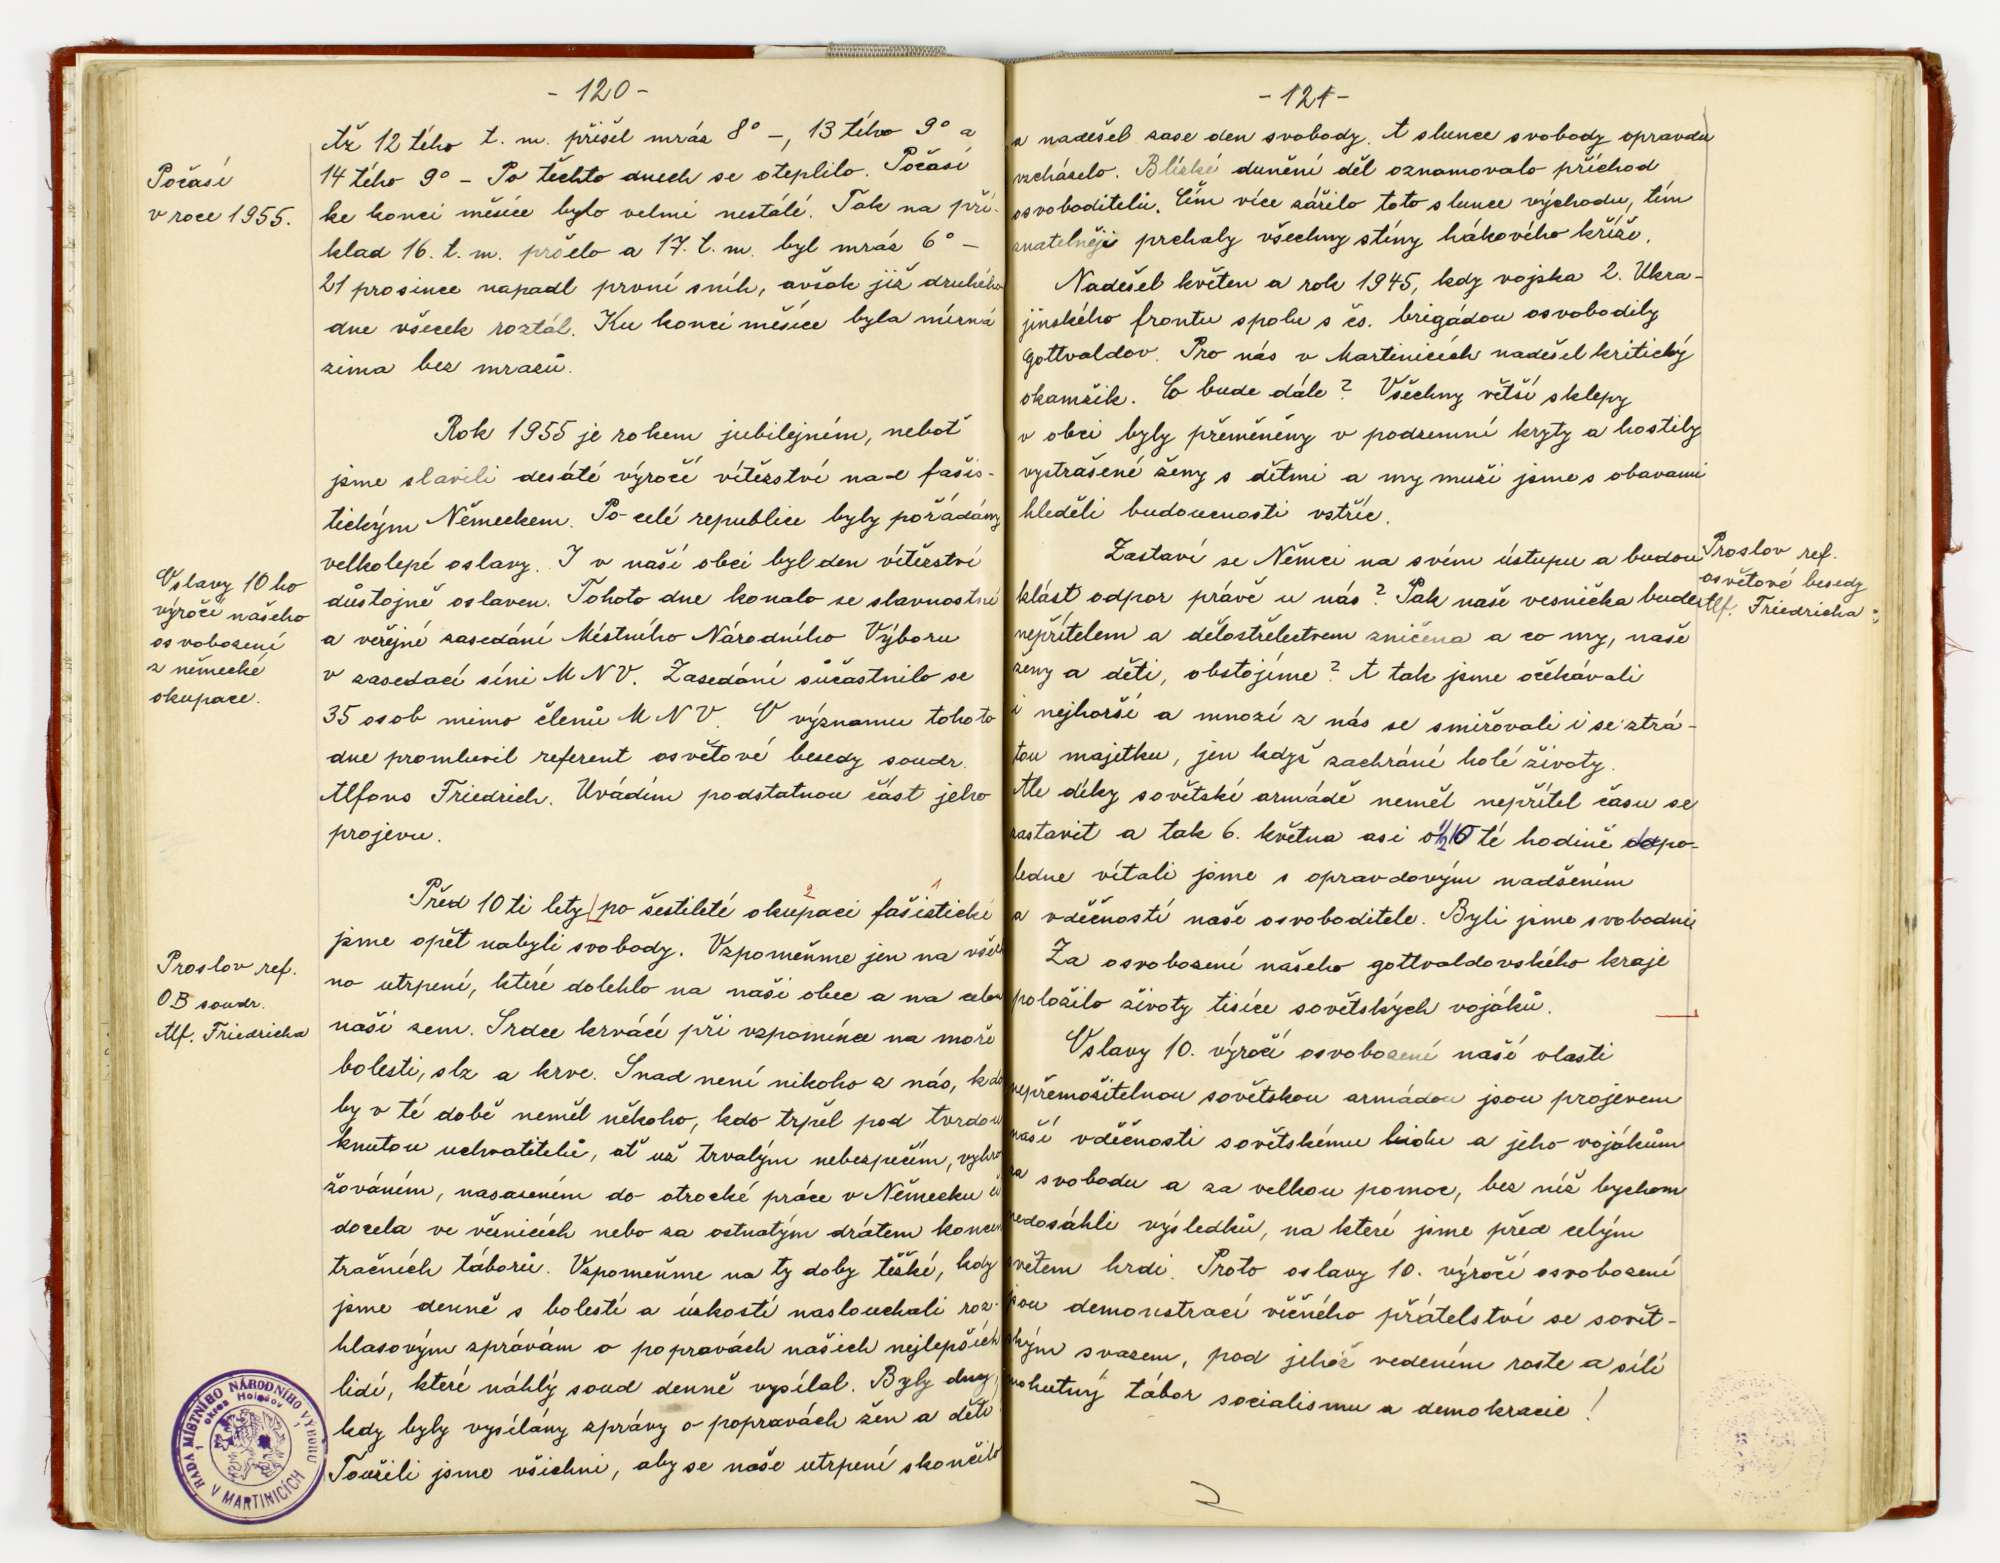 - 120 -
Počasí
v roce 1955.
Až 12 tého t. m. přišel mráz 8° -, 13 tého 9° a
14 tého 9° - Po těchto dnech se oteplilo. Počasí
ke konci měsíce bylo velmi nestálé. Tak na pří-
klad 16. t. m. pršelo a 17. t. m. byl mráz 6° -
21 prosince napadl první sníh, avšak již druhého
dne všecek roztál. Ku konci měsíce byla mírná
zima bez mrazů.
Rok 1955 je rokem jubilejném, neboť
jsme slavili desáté výročí vítězství nad fašis-
tickým Německem. Po celé republice byly pořádány
velkolepé oslavy. I v naší obci byl den vítězství
důstojně oslaven. Tohoto dne konalo se slavnostní
a veřejné zasedání Místního Národního Výboru
v zasedací síni M N V. Zasedání súčastnilo se
35 osob mimo členů M N V. O významu tohoto
dne promluvil referent osvětové besedy soudr.
Alfons Friedrich. Uvádím podstatnou část jeho
projevu.
Oslavy 10 ho
výročí našeho
osvobození
z německé
okupace.
Před 10 ti lety po šestileté okupaci fašistické
jsme opět nabyli svobody. Vzpomeňme jen na všech
no utrpení, které dolehlo na naši obec a na celou
naši zem. Srdce krvácí při vzpomínce na moře
bolesti, slz a krve. Snad není nikoho z nás, kdo
by v té době neměl někoho, kdo trpěl pod tvrdou
knutou uchvatitelů, ať už trvalým nebezpečím, vyhro
žováním, nasazením do otrocké práce v Německu či
docela ve věznicích nebo za ostnatým drátem koncen
tračních táborů. Vzpomeňme na ty doby těžké, kdy
jsme denně s bolestí a úzkostí naslouchali roz-
hlasovým zprávám o popravách našich nejlepších
lidí, které náhlý soud denně vysílal. Byly dny,
kdy byly vysílány zprávy o popravách žen a dětí
Toužili jsme všichni, aby se naše utrpení skončilo
Proslov ref.
OB soudr.
Alf. Friedricha
RADA MÍSTNÍHO NÁRODNÍHO VÝBORU
okres Holešov
V MARTINICÍCH
- 121 -
a nadešel zase den svobody. A slunce svobody opravdu
vzcházelo. Blízké dunění děl oznamovalo příchod
osvoboditelů. Čím více zářilo toto slunce východu, tím
znatelněji prchaly všechny stíny hákového kříže.
Nadešel květen a rok 1945, kdy vojska 2. Ukra-
jinského frontu spolu s čs. brigádou osvobodily
Gottvaldov. Pro nás v Martinicích nadešel kritický
okamžik. Co bude dále? Všechny větší sklepy
v obci byly přeměněny v podzemní kryty a hostily
vystrašené ženy s dětmi a my muži jsme s obavami
hleděli budoucnosti vstříc.
Zastaví se Němci na svém ústupu a budou
klást odpor právě u nás? Pak naše vesnička bude
nepřítelem a dělostřelectvem zničena a co my, naše
ženy a děti, obstojíme? A tak jsme očekávali
i nejhorší a mnozí z nás se smiřovali i se ztrá-
tou majetku, jen když zachrání holé životy.
Ale díky sovětské armádě neměl nepřítel času se
zastavit a tak 6. května asi o 1/2 10 té hodině dopo-
ledne vítali jsme s opravdovým nadšením
a vděčností naše osvoboditele. Byli jsme svobodni
Za osvobození našeho gottvaldovského kraje
položilo životy tisíce sovětských vojáků.
Oslavy 10. výročí osvobození naší vlasti
nepřemožitelnou sovětskou armádou jsou projevem
naší vděčnosti sovětskému lidu a jeho vojákům
za svobodu a za velkou pomoc, bez níž bychom
nedosáhli výsledků, na které jsme před celým
světem hrdi. Proto oslavy 10. výročí osvobození
jsou demonstrací věčného přátelství se sovět-
ským svazem, pod jehož vedením roste a sílí
mohutný tábor socialismu a demokracie!
Proslov ref.
osvětové besedy
Alf. Friedricha: